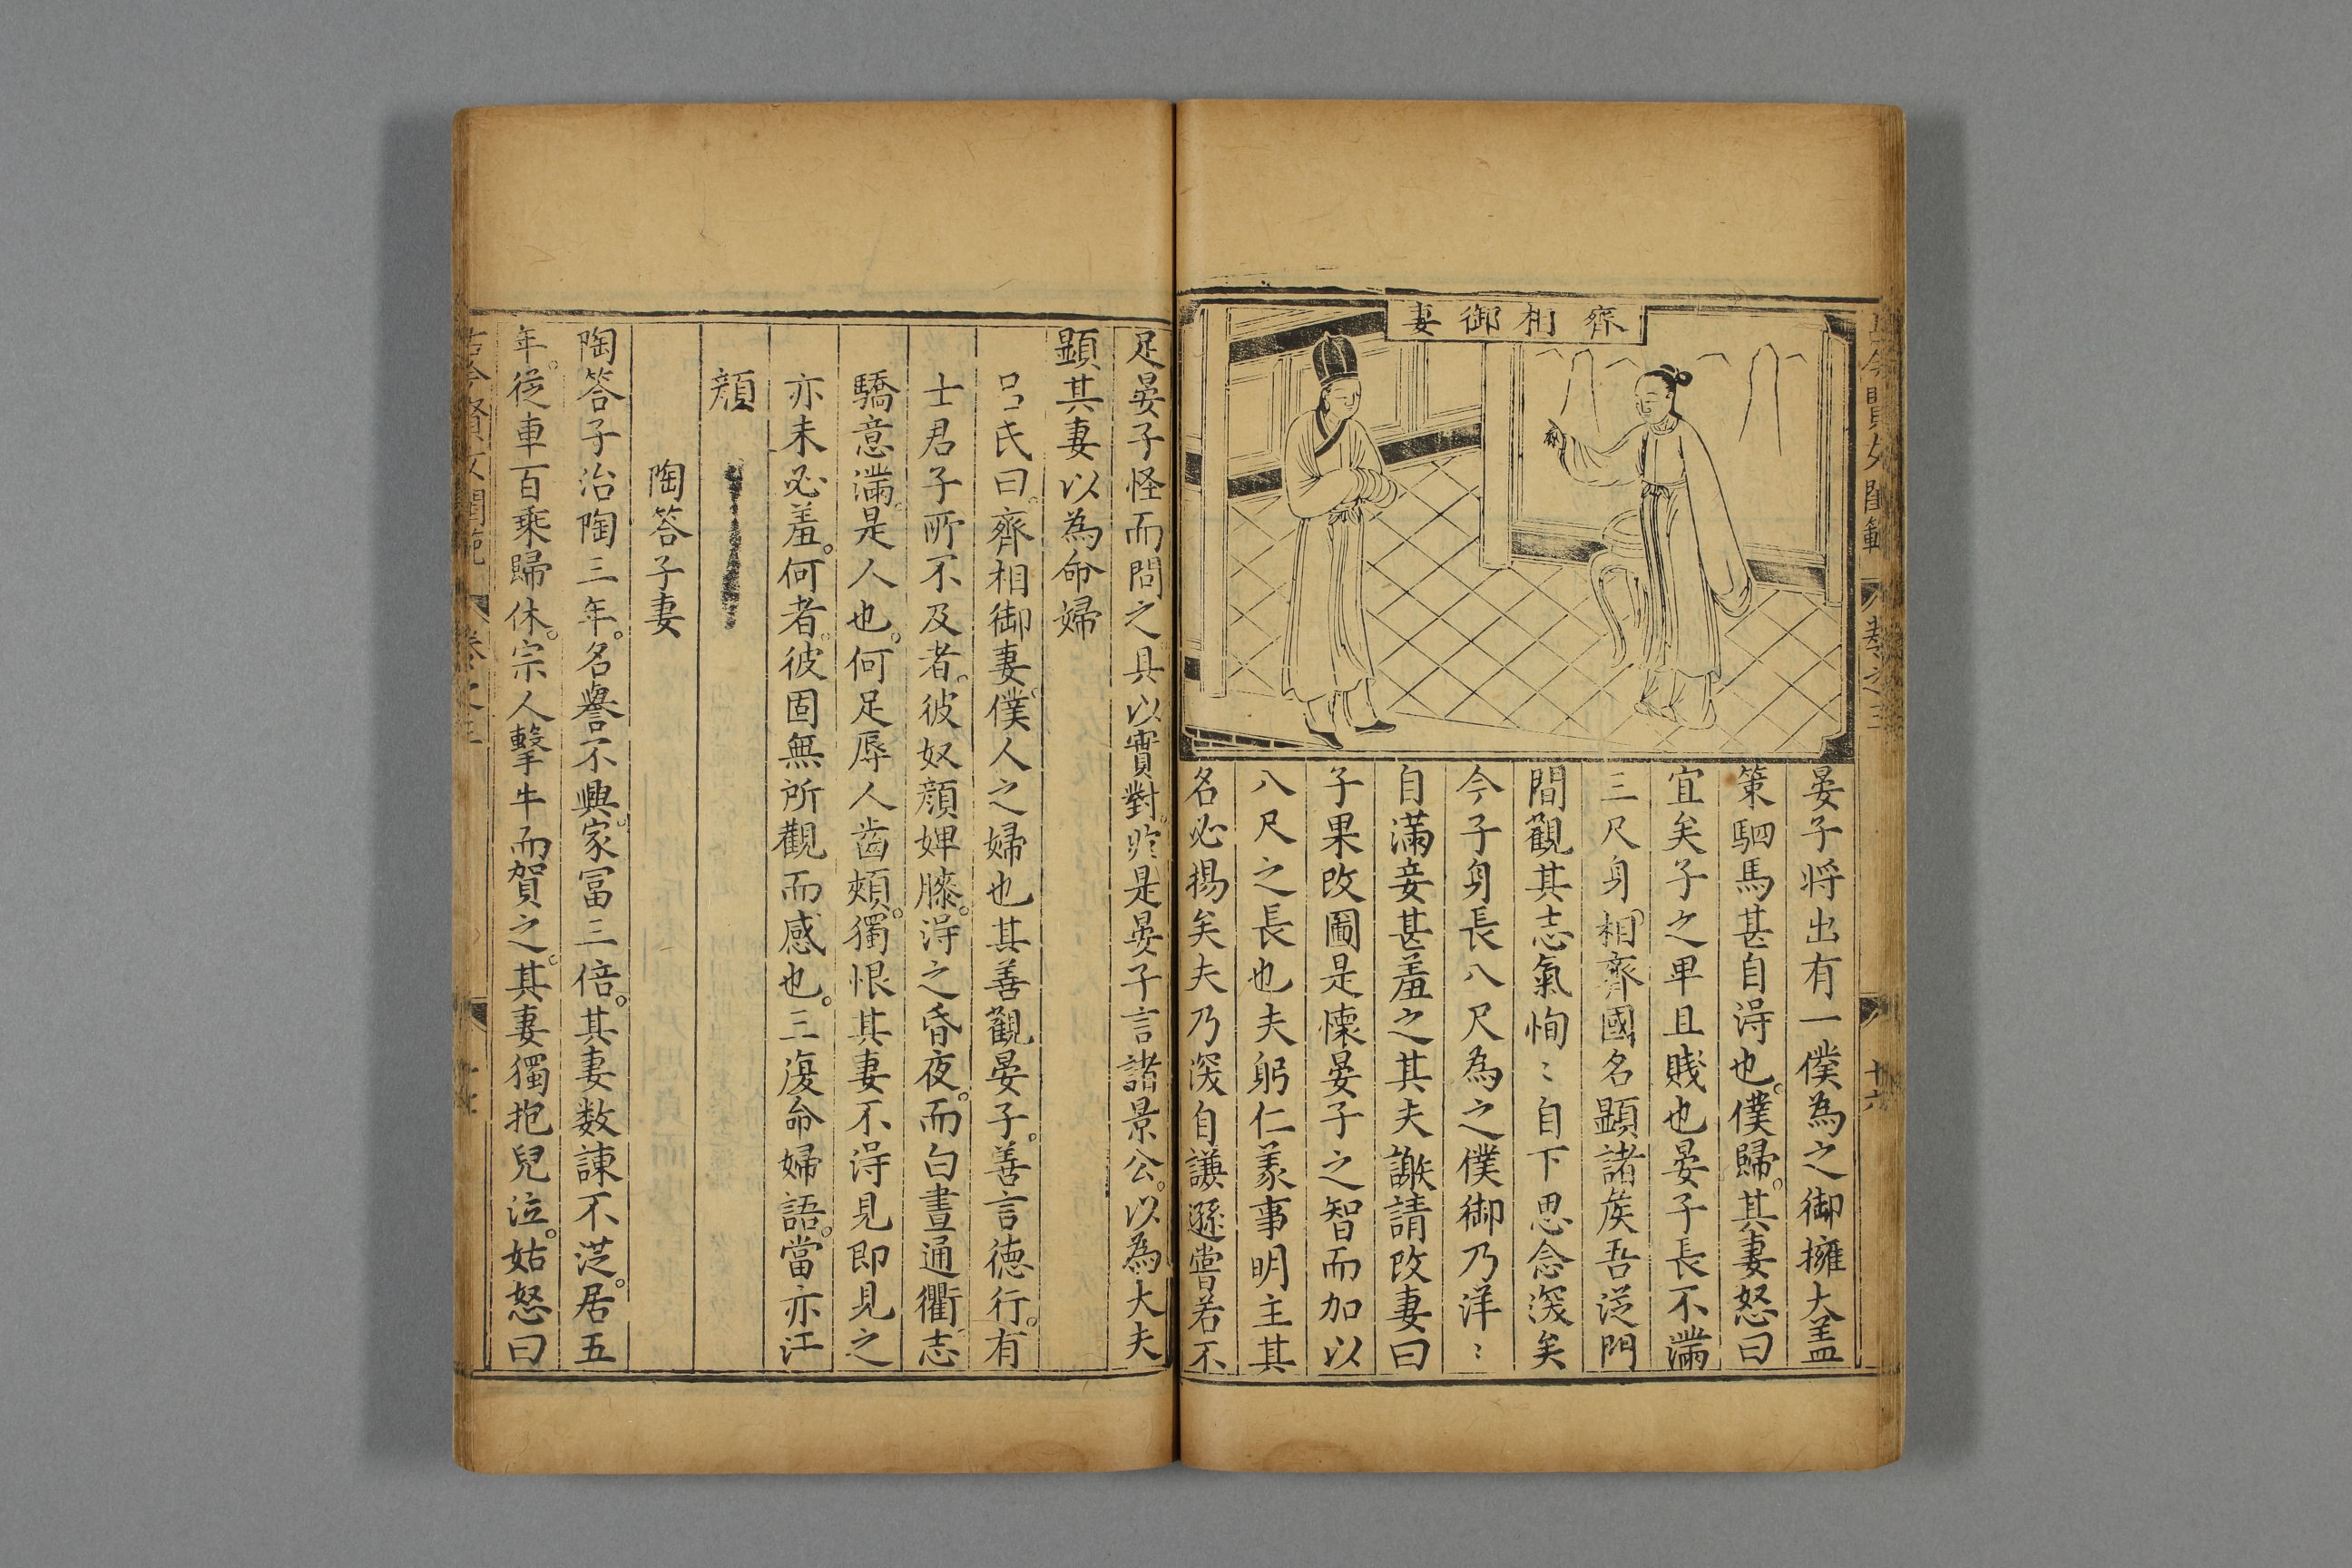 古今賢女閨範 卷之三 十六
齊相御妻
晏子将出有一僕為之御擁大盖
策駟馬甚自淂也僕歸其妻怒曰
宜矣子之卑且賤也晏子長不滿
三尺身相齊國名顯諸矦吾従門
間觀其志氣恂〻自下思念深矣
今子身長八尺為之僕御乃洋〻
自滿妾甚羞之其夫謝請改妻曰
子果改圖是懐晏子之智而加以
八尺之長也夫躬仁義事明主其
名必揚矣夫乃深自謙遜嘗若不
足晏子怪而問之具以實對於是晏子言諸景公以為大夫
顯其妻以為命婦
吕氏曰齊相御妻僕人之婦也其善觀晏子善言德行有
士君子所不及者彼奴顔婢膝淂之昏夜而白晝通衢志
驕意滿是人也何足辱人齒頰獨恨其妻不淂見即見之
亦未必羞何者彼固無所觀而感也三復命婦語當亦汗
顔
陶答子妻
陶答子治陶三年名譽不興家冨三倍其妻数諌不従居五
年従車百乘歸休宗人擊牛而賀之其妻獨抱兒泣姑怒曰
古今賢女閨範 卷之三